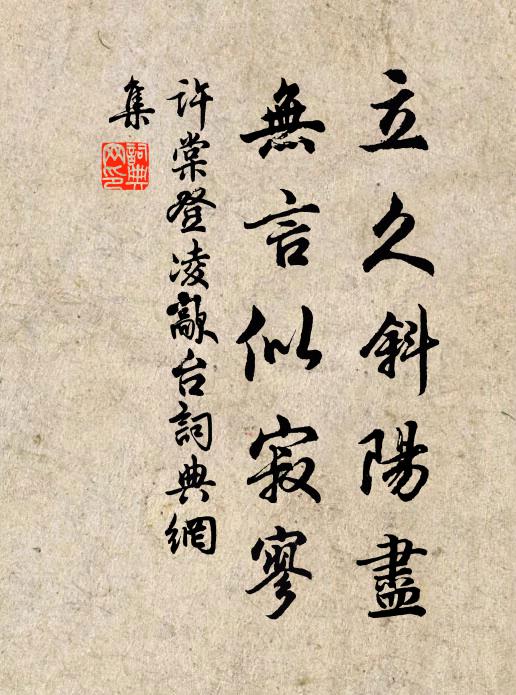 立久斜陽盡
無言似寂寥
許棠登凌歊台詞典網
集
詞典
网印